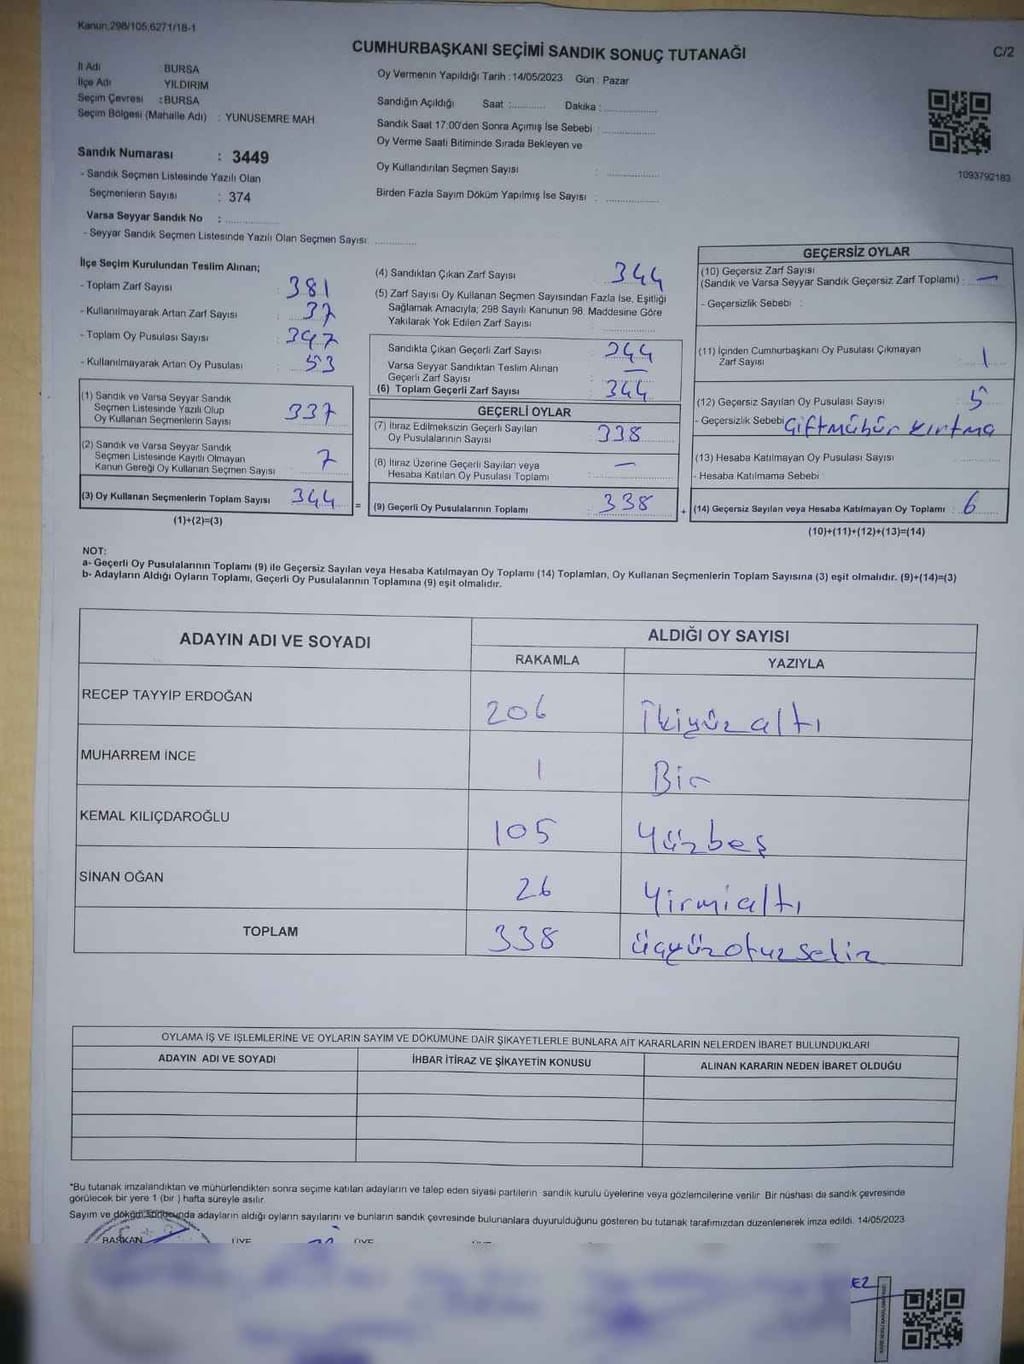 Kanun:298/105,6271/18-1
CUMHURBAŞKANI SEÇİMİ SANDIK SONUÇ TUTANAĞI
C/2
İl Adı : BURSA
İlçe Adı : YILDIRIM
Seçim Çevresi : BURSA
Seçim Bölgesi (Mahalle Adı) : YUNUSEMRE MAH
Oy Vermenin Yapıldığı Tarih : 14/05/2023 Gün : Pazar
Sandığın Açıldığı Saat :............ Dakika :............
Sandık Saat 17:00'den Sonra Açımış İse Sebebi :............
Oy Verme Saati Bitiminde Sırada Bekleyen ve
Oy Kullandırılan Seçmen Sayısı :............
Birden Fazla Sayım Döküm Yapılmış İse Sayısı :............
1093792183
Sandık Numarası : 3449
- Sandık Seçmen Listesinde Yazılı Olan
Seçmenlerin Sayısı : 374
Varsa Seyyar Sandık No :............
- Seyyar Sandık Seçmen Listesinde Yazılı Olan Seçmen Sayısı: ............
İlçe Seçim Kurulundan Teslim Alınan;
- Toplam Zarf Sayısı : 381
- Kullanılmayarak Artan Zarf Sayısı : 37
- Toplam Oy Pusulası Sayısı : 397
- Kullanılmayarak Artan Oy Pusulası : 53
(1) Sandık ve Varsa Seyyar Sandık
Seçmen Listesinde Yazılı Olup
Oy Kullanan Seçmenlerin Sayısı : 337
(2) Sandık ve Varsa Seyyar Sandık
Seçmen Listesinde Kayıtlı Olmayan
Kanun Gereği Oy Kullanan Seçmen Sayısı : 7
(3) Oy Kullanan Seçmenlerin Toplam Sayısı : 344
(1)+(2)=(3)
=
(4) Sandıktan Çıkan Zarf Sayısı : 344
(5) Zarf Sayısı Oy Kullanan Seçmen Sayısından Fazla İse, Eşitliği
Sağlamak Amacıyla; 298 Sayılı Kanunun 98. Maddesine Göre
Yakılarak Yok Edilen Zarf Sayısı :............
Sandıkta Çıkan Geçerli Zarf Sayısı : 344
Varsa Seyyar Sandıktan Teslim Alınan
Geçerli Zarf Sayısı : —
(6) Toplam Geçerli Zarf Sayısı : 344
GEÇERLİ OYLAR
(7) İtiraz Edilmeksizin Geçerli Sayılan
Oy Pusulalarının Sayısı : 338
(8) İtiraz Üzerine Geçerli Sayılan veya
Hesaba Katılan Oy Pusulası Toplamı : —
(9) Geçerli Oy Pusulalarının Toplamı : 338
+
GEÇERSİZ OYLAR
(10) Geçersiz Zarf Sayısı
(Sandık ve Varsa Seyyar Sandık Geçersiz Zarf Toplamı) : —
- Geçersizlik Sebebi :
(11) İçinden Cumhurbaşkanı Oy Pusulası Çıkmayan
Zarf Sayısı : 1
(12) Geçersiz Sayılan Oy Pusulası Sayısı : 5
- Geçersizlik Sebebi : Çiftmühür yırtma
(13) Hesaba Katılmayan Oy Pusulası Sayısı :............
- Hesaba Katılmama Sebebi :
(14) Geçersiz Sayılan veya Hesaba Katılmayan Oy Toplamı : 6
(10)+(11)+(12)+(13)=(14)
NOT:
a- Geçerli Oy Pusulalarının Toplamı (9) ile Geçersiz Sayılan veya Hesaba Katılmayan Oy Toplamı (14) Toplamları, Oy Kullanan Seçmenlerin Toplam Sayısına (3) eşit olmalıdır. (9)+(14)=(3)
b- Adayların Aldığı Oyların Toplamı, Geçerli Oy Pusulalarının Toplamına (9) eşit olmalıdır.
ADAYIN ADI VE SOYADI
ALDIĞI OY SAYISI
RAKAMLA YAZIYLA
RECEP TAYYİP ERDOĞAN 206 İkiyüzaltı
MUHARREM İNCE 1 Bir
KEMAL KILIÇDAROĞLU 105 Yüzbeş
SİNAN OĞAN 26 Yirmialtı
TOPLAM 338 Üçyüzotuzsekiz
OYLAMA İŞ VE İŞLEMLERİNE VE OYLARIN SAYIM VE DÖKÜMÜNE DAİR ŞİKAYETLERLE BUNLARA AİT KARARLARIN NELERDEN İBARET BULUNDUKLARI
ADAYIN ADI VE SOYADI İHBAR İTİRAZ VE ŞİKAYETİN KONUSU ALINAN KARARIN NEDEN İBARET OLDUĞU
*Bu tutanak imzalandıktan ve mühürlendikten sonra seçime katılan adayların ve talep eden siyasi partilerin sandık kurulu üyelerine veya gözlemcilerine verilir. Bir nüshası da sandık çevresinde
görülecek bir yere 1 (bir ) hafta süreyle asılır.
Sayım ve dökümünda adayların aldığı oyların sayılarını ve bunların sandık çevresinde bulunanlara duyurulduğunu gösteren bu tutanak tarafımızdan düzenlenerek imza edildi. 14/05/2023
BAŞKAN ÜYE ÜYE
EZ